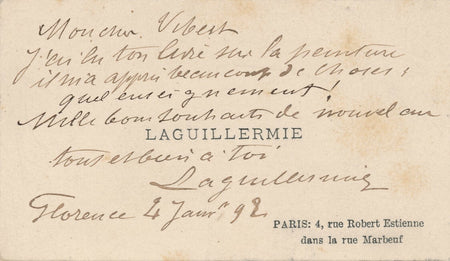 Mon cher Vibert
j'ai lu ton livre sur la peinture
il m'a appris beaucoup de choses,
quel enseignement!
Mille bons souhaits de nouvel an
LAGUILLERMIE
tout et bien à toi
Laguillermie
Florence 2 Janv. 92
PARIS: 4, rue Robert Estienne
dans la rue Marbeuf